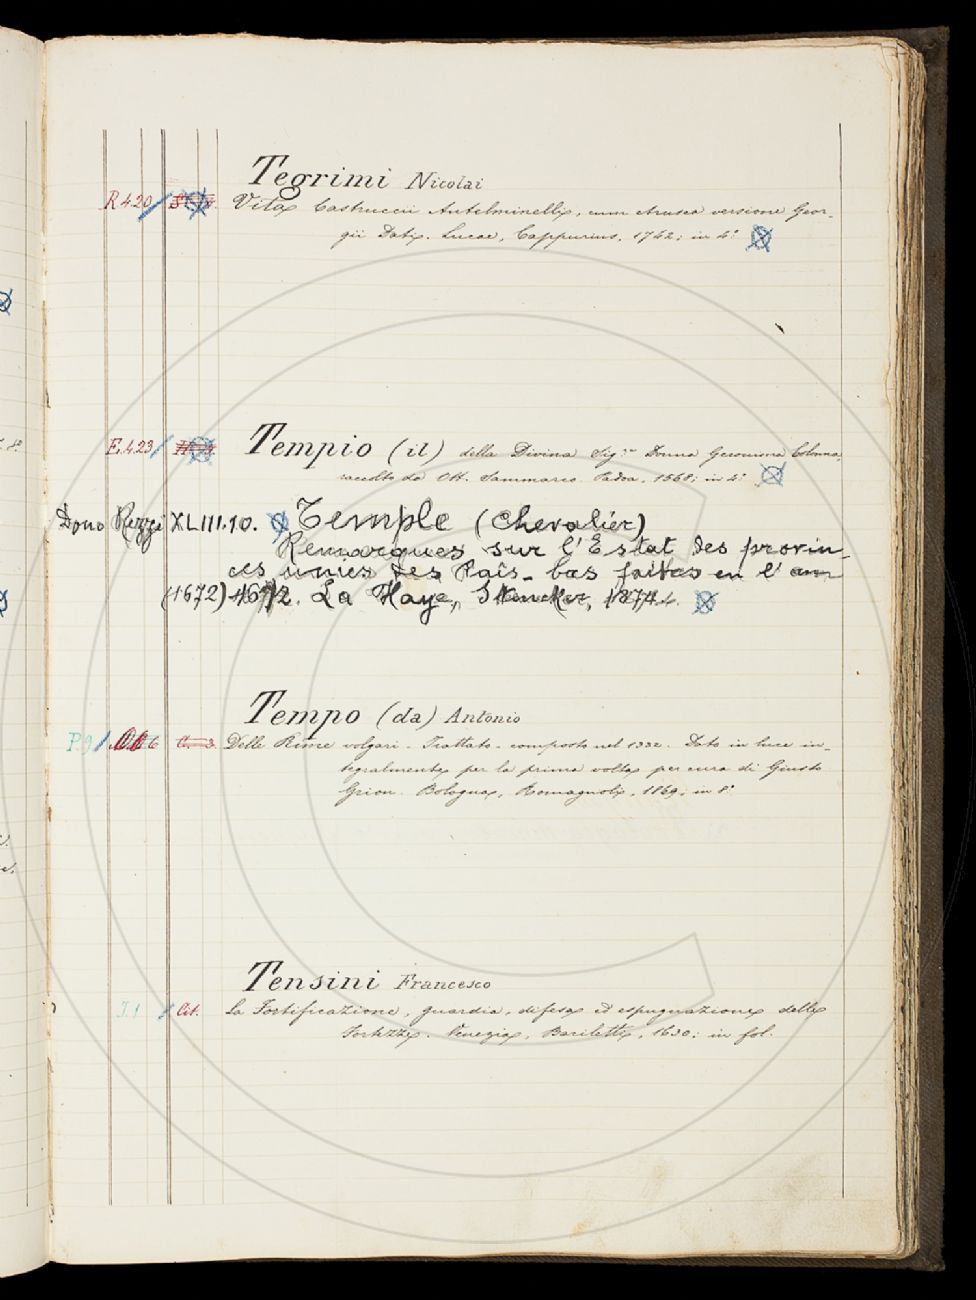 Tegrimi Nicolai
R 4.20 Vita Castruccii Antelminelli, cum etrusca versione Geor-
gii Dati. Lucae, Cappurius, 1742; in 4°
E. 4.23 Tempio (il) della Divina Sig.ra Donna Geronima Colonna,
raccolto da Ott. Sammarco. Padoa, 1568; in 4°
Dono Rezzi XLIII.10. Temple (Chevalier)
Remarques sur l'Estat des provin-
ces unies des Païs-bas faites en l'an
(1672) 1672. La Haye,
Tempo (da) Antonio
P 9 Delle Rime volgari. Trattato composto nel 1332. Dato in luce in-
tegralmente per la prima volta per cura di Giusto
Grion. Bologna, Romagnoli, 1869; in 8°
Tensini Francesco
I.1 Cit. La Fortificazione, guardia, difesa et espugnazione delle
Fortezze. Venezia, Bariletti, 1630; in fol.